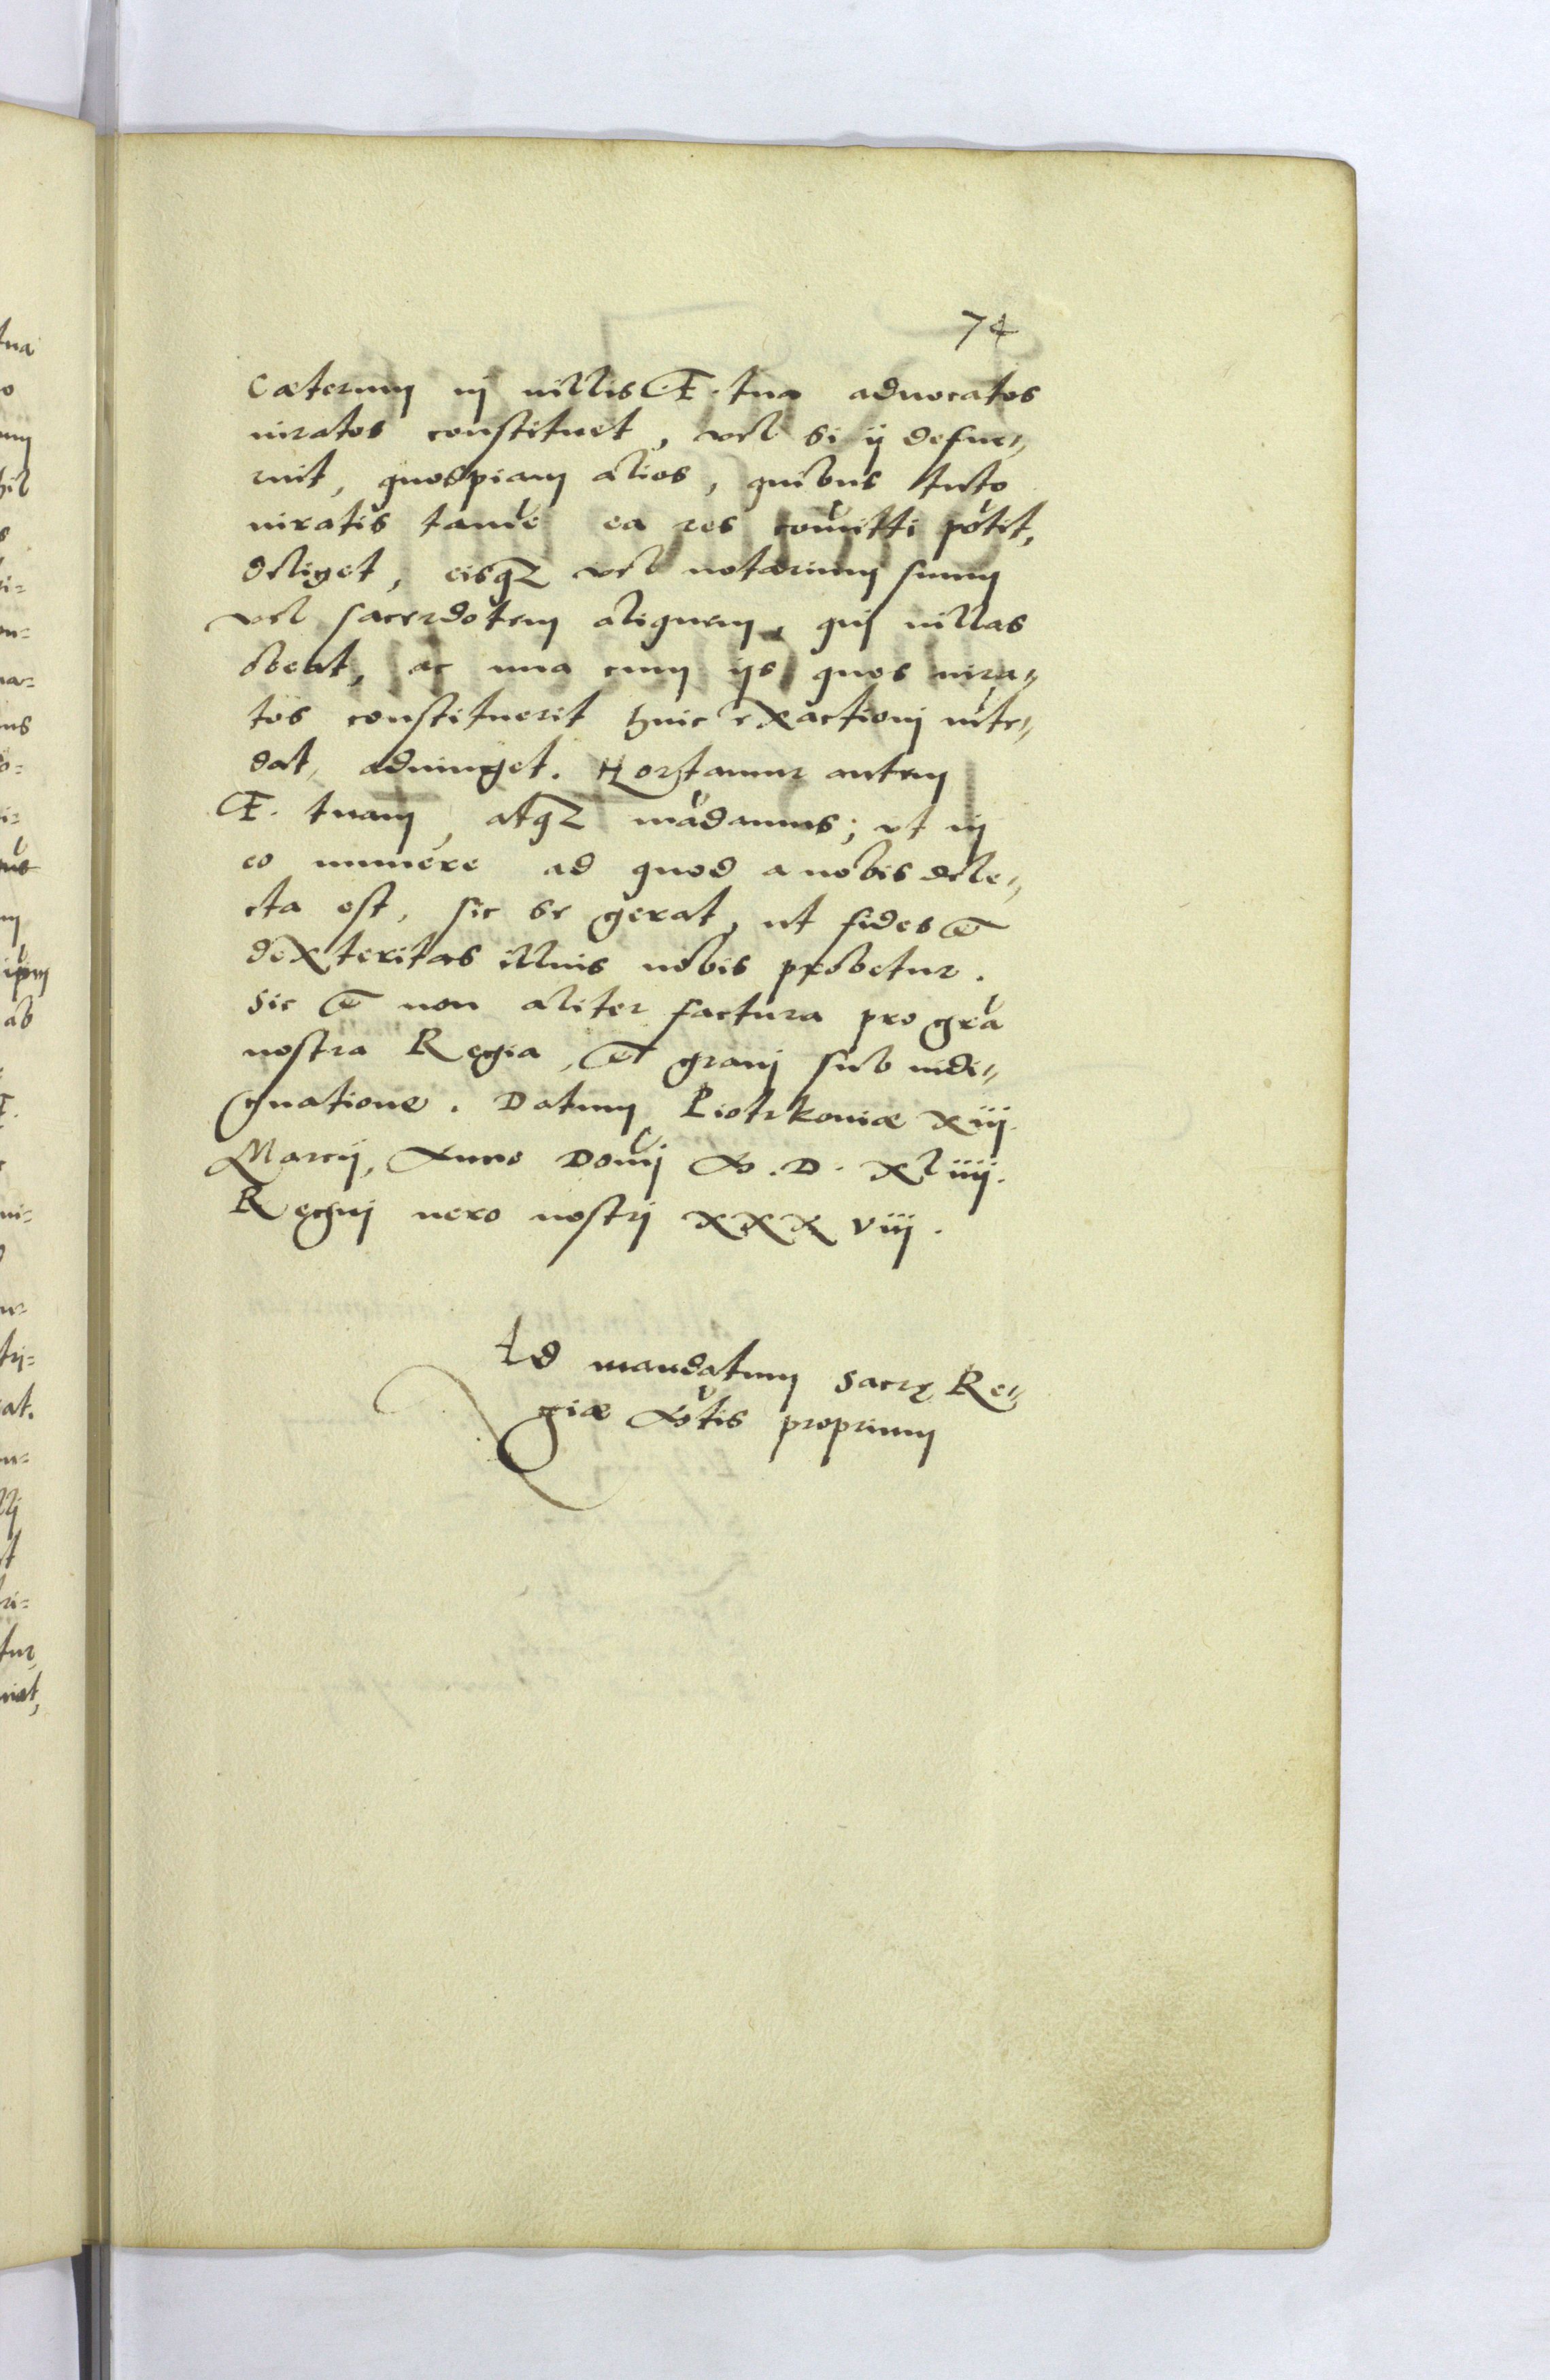 74
Cæterum in villis F. tua advocatos
iuratos constituet, vel si ij defue„
rint, quospiam alios, quibus tuto
iuratis tamē ea res comitti potit,
deliget, eisq₃ vel notarium suum
vel sacerdotem aliquem, qui villas
obeat, ac una cum ijs quos iura„
tos constituerit huic exactioni inte„
dat, adiunget. Hortamur autem
F. tuam, atq₃ mādamus; ut in
eo munere ad quod a nobis dele„
cta est, sic se gerat, ut fides et
dexteritas illius nobis probetur.
Sic et non aliter factura pro gr̄a
nostra Regia, et gravi sub indi„
gnatione. Datum Piotrkoviæ xiij.
Marcij, Anno Domī M. D. xliiij.
Regni vero nostri xxx viij.
Ad mandatum Sacrę Re„
giæ Mtis proprium